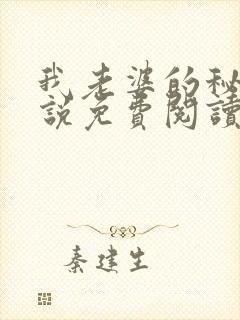 我老婆的秘
說免費閱讀
秦建生